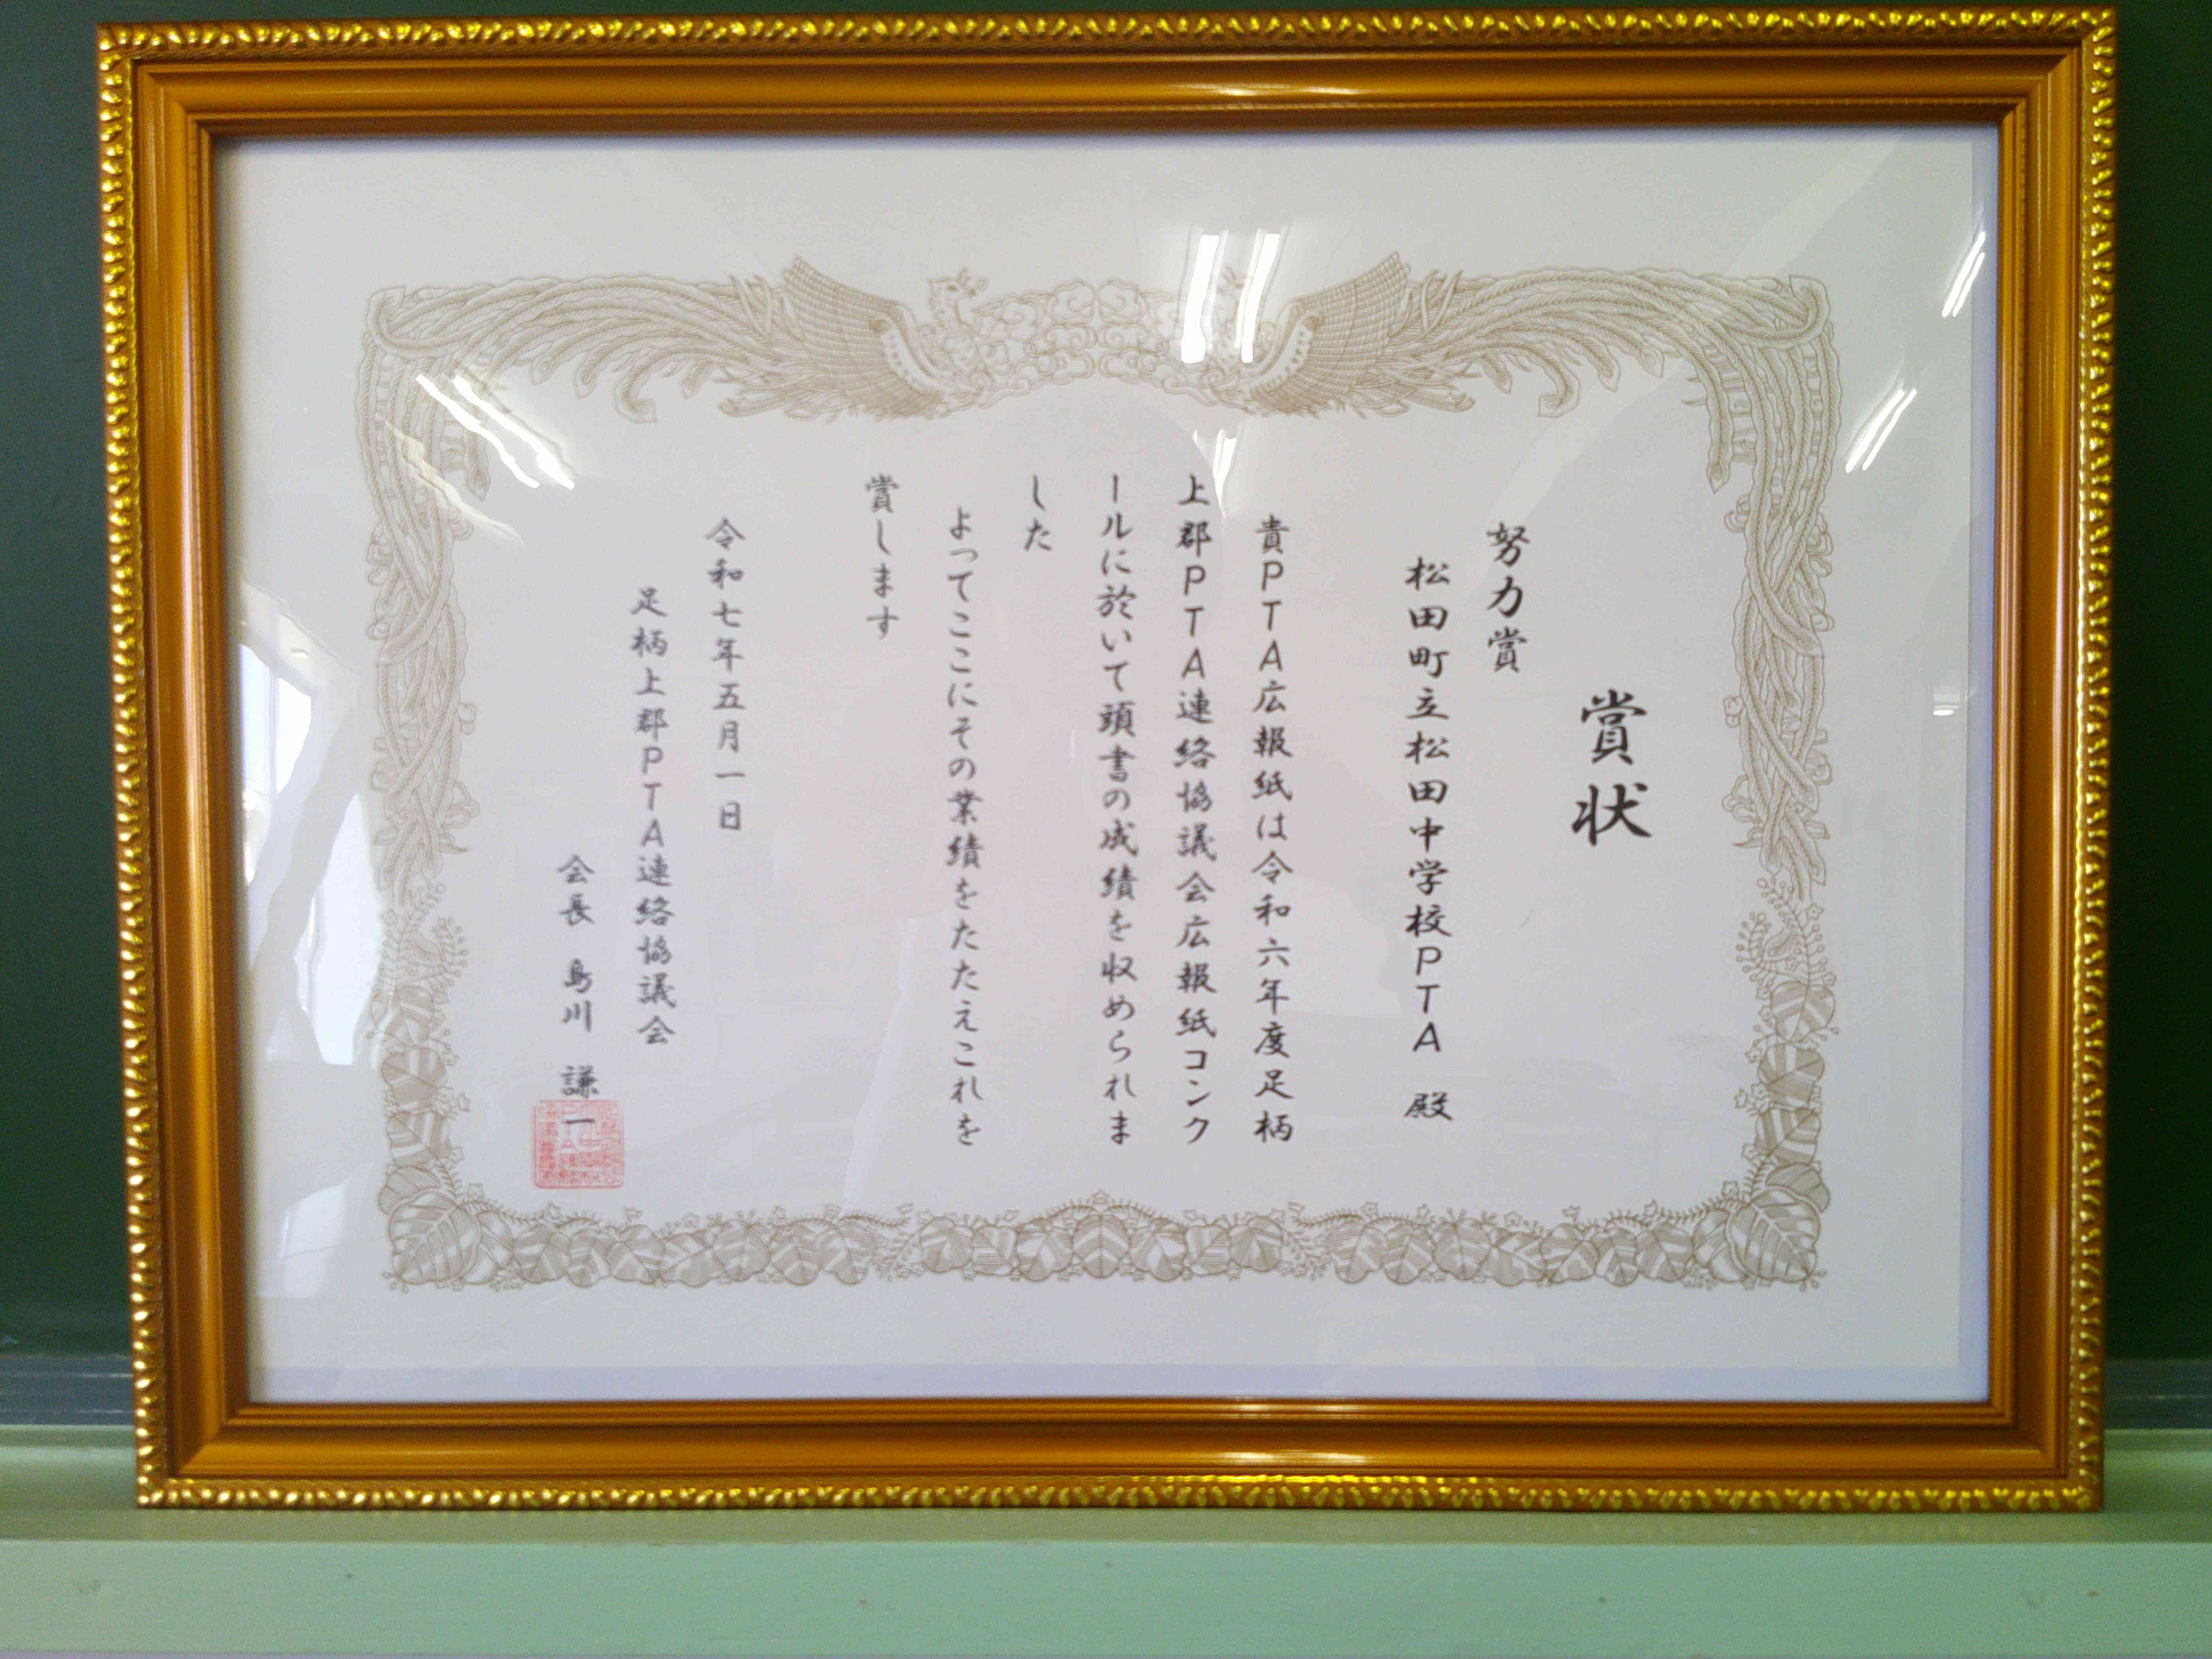 賞状
努力賞
松田町立松田中学校PTA 殿
貴PTA広報紙は令和六年度足柄
上郡PTA連絡協議会広報紙コンク
ールに於いて頭書の成績を収められま
した
よってここにその業績をたたえこれを
賞します
令和七年五月一日
足柄上郡PTA連絡協議会
会長 島川 謙一